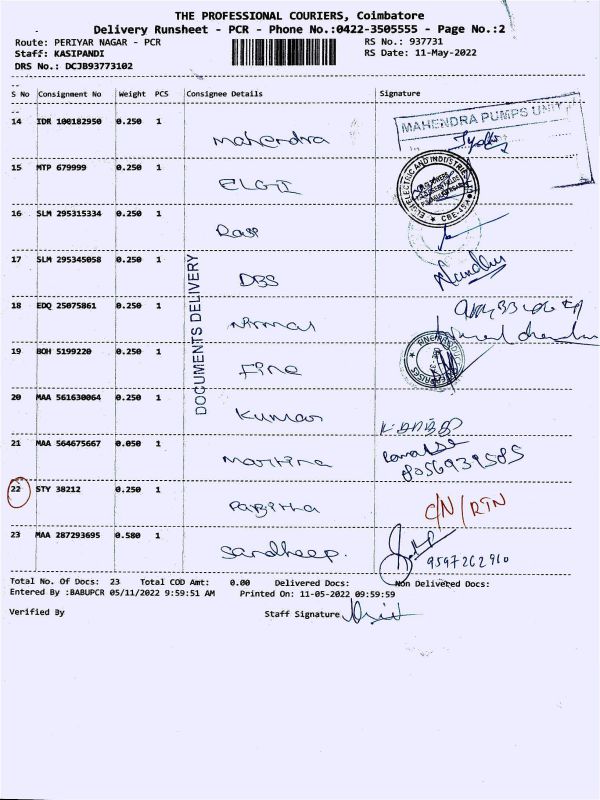 THE PROFESSIONAL COURIERS, Coimbatore
Delivery Runsheet - PCR - Phone No.:0422-3505555 - Page No.:2
Route: PERIYAR NAGAR - PCR RS No.: 937731
Staff: KASIPANDI RS Date: 11-May-2022
DRS No.: DCJB93773102
S No Consignment No Weight PCS Consignee Details Signature
14 IDR 100182950 0.250 1 Mahendra MAHENDRA PUMPS UNIT
15 MTP 679999 0.250 1 ELGI
16 SLM 295315334 0.250 1
17 SLM 295345058 0.250 1 DBS Nandhu
DOCUMENTS DELIVERY
18 EDQ 25075861 0.250 1 Nirmal
19 BOH 5199220 0.250 1 Fine
20 MAA 561630064 0.250 1 Kumar
21 MAA 564675667 0.050 1 8056939585
22 STY 38212 0.250 1 Pabitha C/N/RTN
23 MAA 287293695 0.580 1 Sandheep. 9597262910
Total No. Of Docs: 23 Total COD Amt: 0.00 Delivered Docs: Non Delivered Docs:
Entered By :BABUPCR 05/11/2022 9:59:51 AM Printed On: 11-05-2022 09:59:59
Verified By Staff Signature